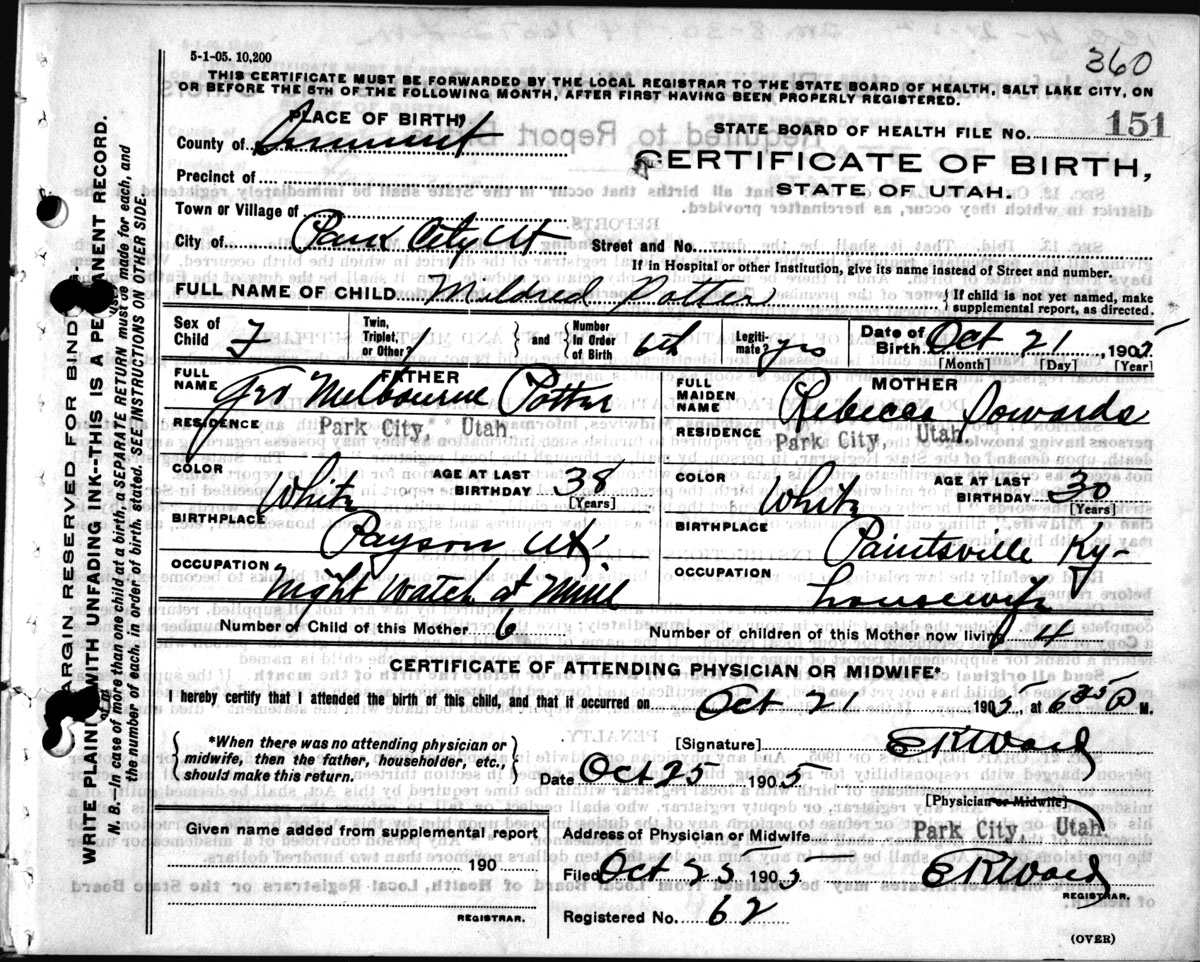 5-1-05. 10,200
360
THIS CERTIFICATE MUST BE FORWARDED BY THE LOCAL REGISTRAR TO THE STATE BOARD OF HEALTH, SALT LAKE CITY, ON
OR BEFORE THE 5TH OF THE FOLLOWING MONTH, AFTER FIRST HAVING BEEN PROPERLY REGISTERED.
PLACE OF BIRTH,
County of Summit
STATE BOARD OF HEALTH FILE NO. 151
CERTIFICATE OF BIRTH,
STATE OF UTAH.
Precinct of
Town or Village of
City of Park City Ut
Street and No.
If in Hospital or other Institution, give its name instead of Street and number.
FULL NAME OF CHILD Mildred Potter
{If child is not yet named, make supplemental report, as directed.
Sex of Child F
Twin, Triplet, or Other? 1
} and {
Number In Order of Birth 6th
Legitimate? yes
Date of Birth Oct 21, 1905
[Month] [Day] [Year]
FATHER
FULL NAME Geo Melbourne Potter
RESIDENCE Park City, Utah.
COLOR White
AGE AT LAST BIRTHDAY 38
[Years]
BIRTHPLACE Payson Ut
OCCUPATION Night Watch at Mill
MOTHER
FULL MAIDEN NAME Rebecca Sowards
RESIDENCE Park City, Utah.
COLOR White
AGE AT LAST BIRTHDAY 30
[Years]
BIRTHPLACE Paintsville Ky-
OCCUPATION housewife
Number of Child of this Mother 6
Number of children of this Mother now living 4
CERTIFICATE OF ATTENDING PHYSICIAN OR MIDWIFE*
I hereby certify that I attended the birth of this child, and that it occurred on Oct 21 1905, at 6 25 P M.
{*When there was no attending physician or midwife, then the father, householder, etc., should make this return.}
[Signature] E R Ward
Date Oct 25 1905
[Physician or Midwife]
Given name added from supplemental report
190
REGISTRAR.
Address of Physician or Midwife Park City, Utah.
Filed Oct 25 1905 E R Ward
REGISTRAR.
Registered No. 62
(OVER)
MARGIN RESERVED FOR BINDING.
WRITE PLAINLY WITH UNFADING INK--THIS IS A PERMANENT RECORD.
N. B.—In case of more than one child at a birth, a SEPARATE RETURN must be made for each, and
the number of each, in order of birth, stated. SEE INSTRUCTIONS ON OTHER SIDE.